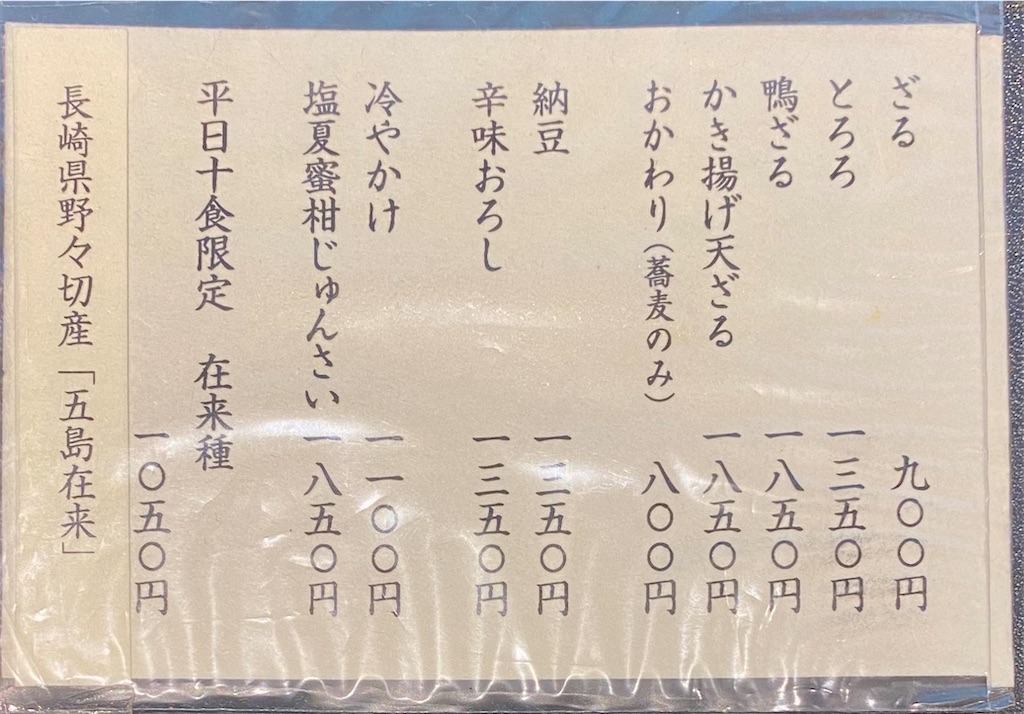 ざる 九〇〇円
とろろ 一三五〇円
鴨ざる 一八五〇円
かき揚げ天ざる 一八五〇円
おかわり（蕎麦のみ） 八〇〇円
納豆 一三五〇円
辛味おろし 一三五〇円
冷やかけ 一一〇〇円
塩夏蜜柑じゅんさい 一八五〇円
平日十食限定 在来種
一〇五〇円
長崎県野々切産「五島在来」